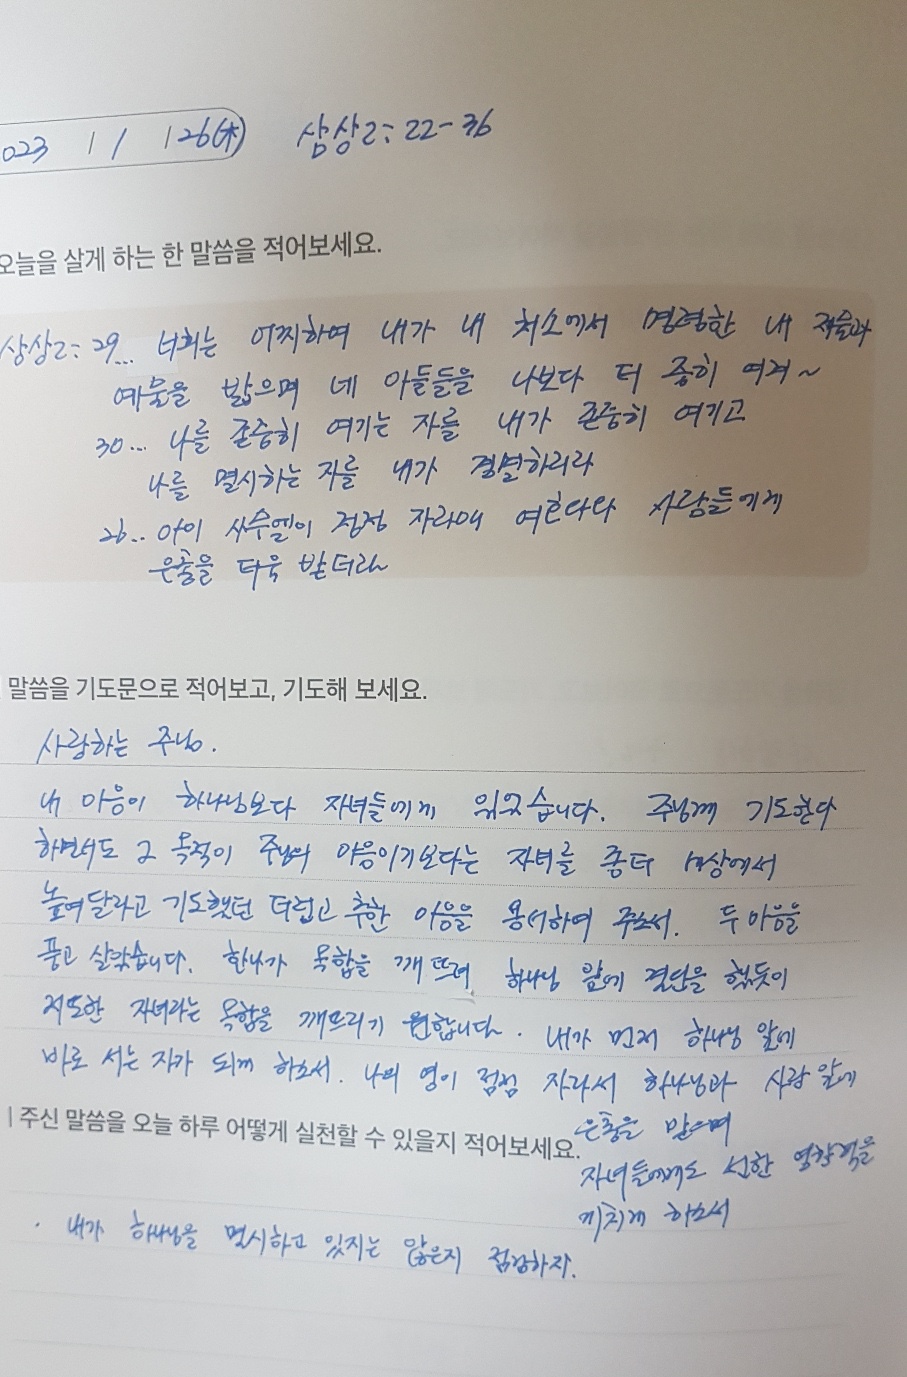 023 1 / 26(木) 삼상2:22-36
오늘을 살게 하는 한 말씀을 적어보세요.
삼상2:29... 너희는 어찌하여 내가 내 처소에서 명령한 내 제물과
예물을 밟으며 네 아들들을 나보다 더 중히 여겨~
30... 나를 존중히 여기는 자를 내가 존중히 여기고
나를 멸시하는 자를 내가 경멸하리라
26.. 아이 사무엘이 점점 자라매 여호와와 사람들에게
은총을 더욱 받더라
말씀을 기도문으로 적어보고, 기도해 보세요.
사랑하는 주님.
내 마음이 하나님보다 자녀들에게 있었습니다. 주님께 기도한다
하면서도 그 목적이 주님의 마음이기보다는 자녀를 좀더 세상에서
높여달라고 기도했던 더럽고 추한 마음을 용서하여 주소서. 두 마음을
품고 살았습니다. 한나가 옥합을 깨뜨려 하나님 앞에 결단을 했듯이
저또한 자녀라는 옥합을 깨뜨리기 원합니다. 내가 먼저 하나님 앞에
바로 서는 자가 되게 하소서. 나의 영이 점점 자라서 하나님과 사람앞에
은총을 받으며
자녀들에게도 선한 영향력을
끼치게 하소서
| 주신 말씀을 오늘 하루 어떻게 실천할 수 있을지 적어보세요.
· 내가 하나님을 멸시하고 있지는 않은지 점검하자.